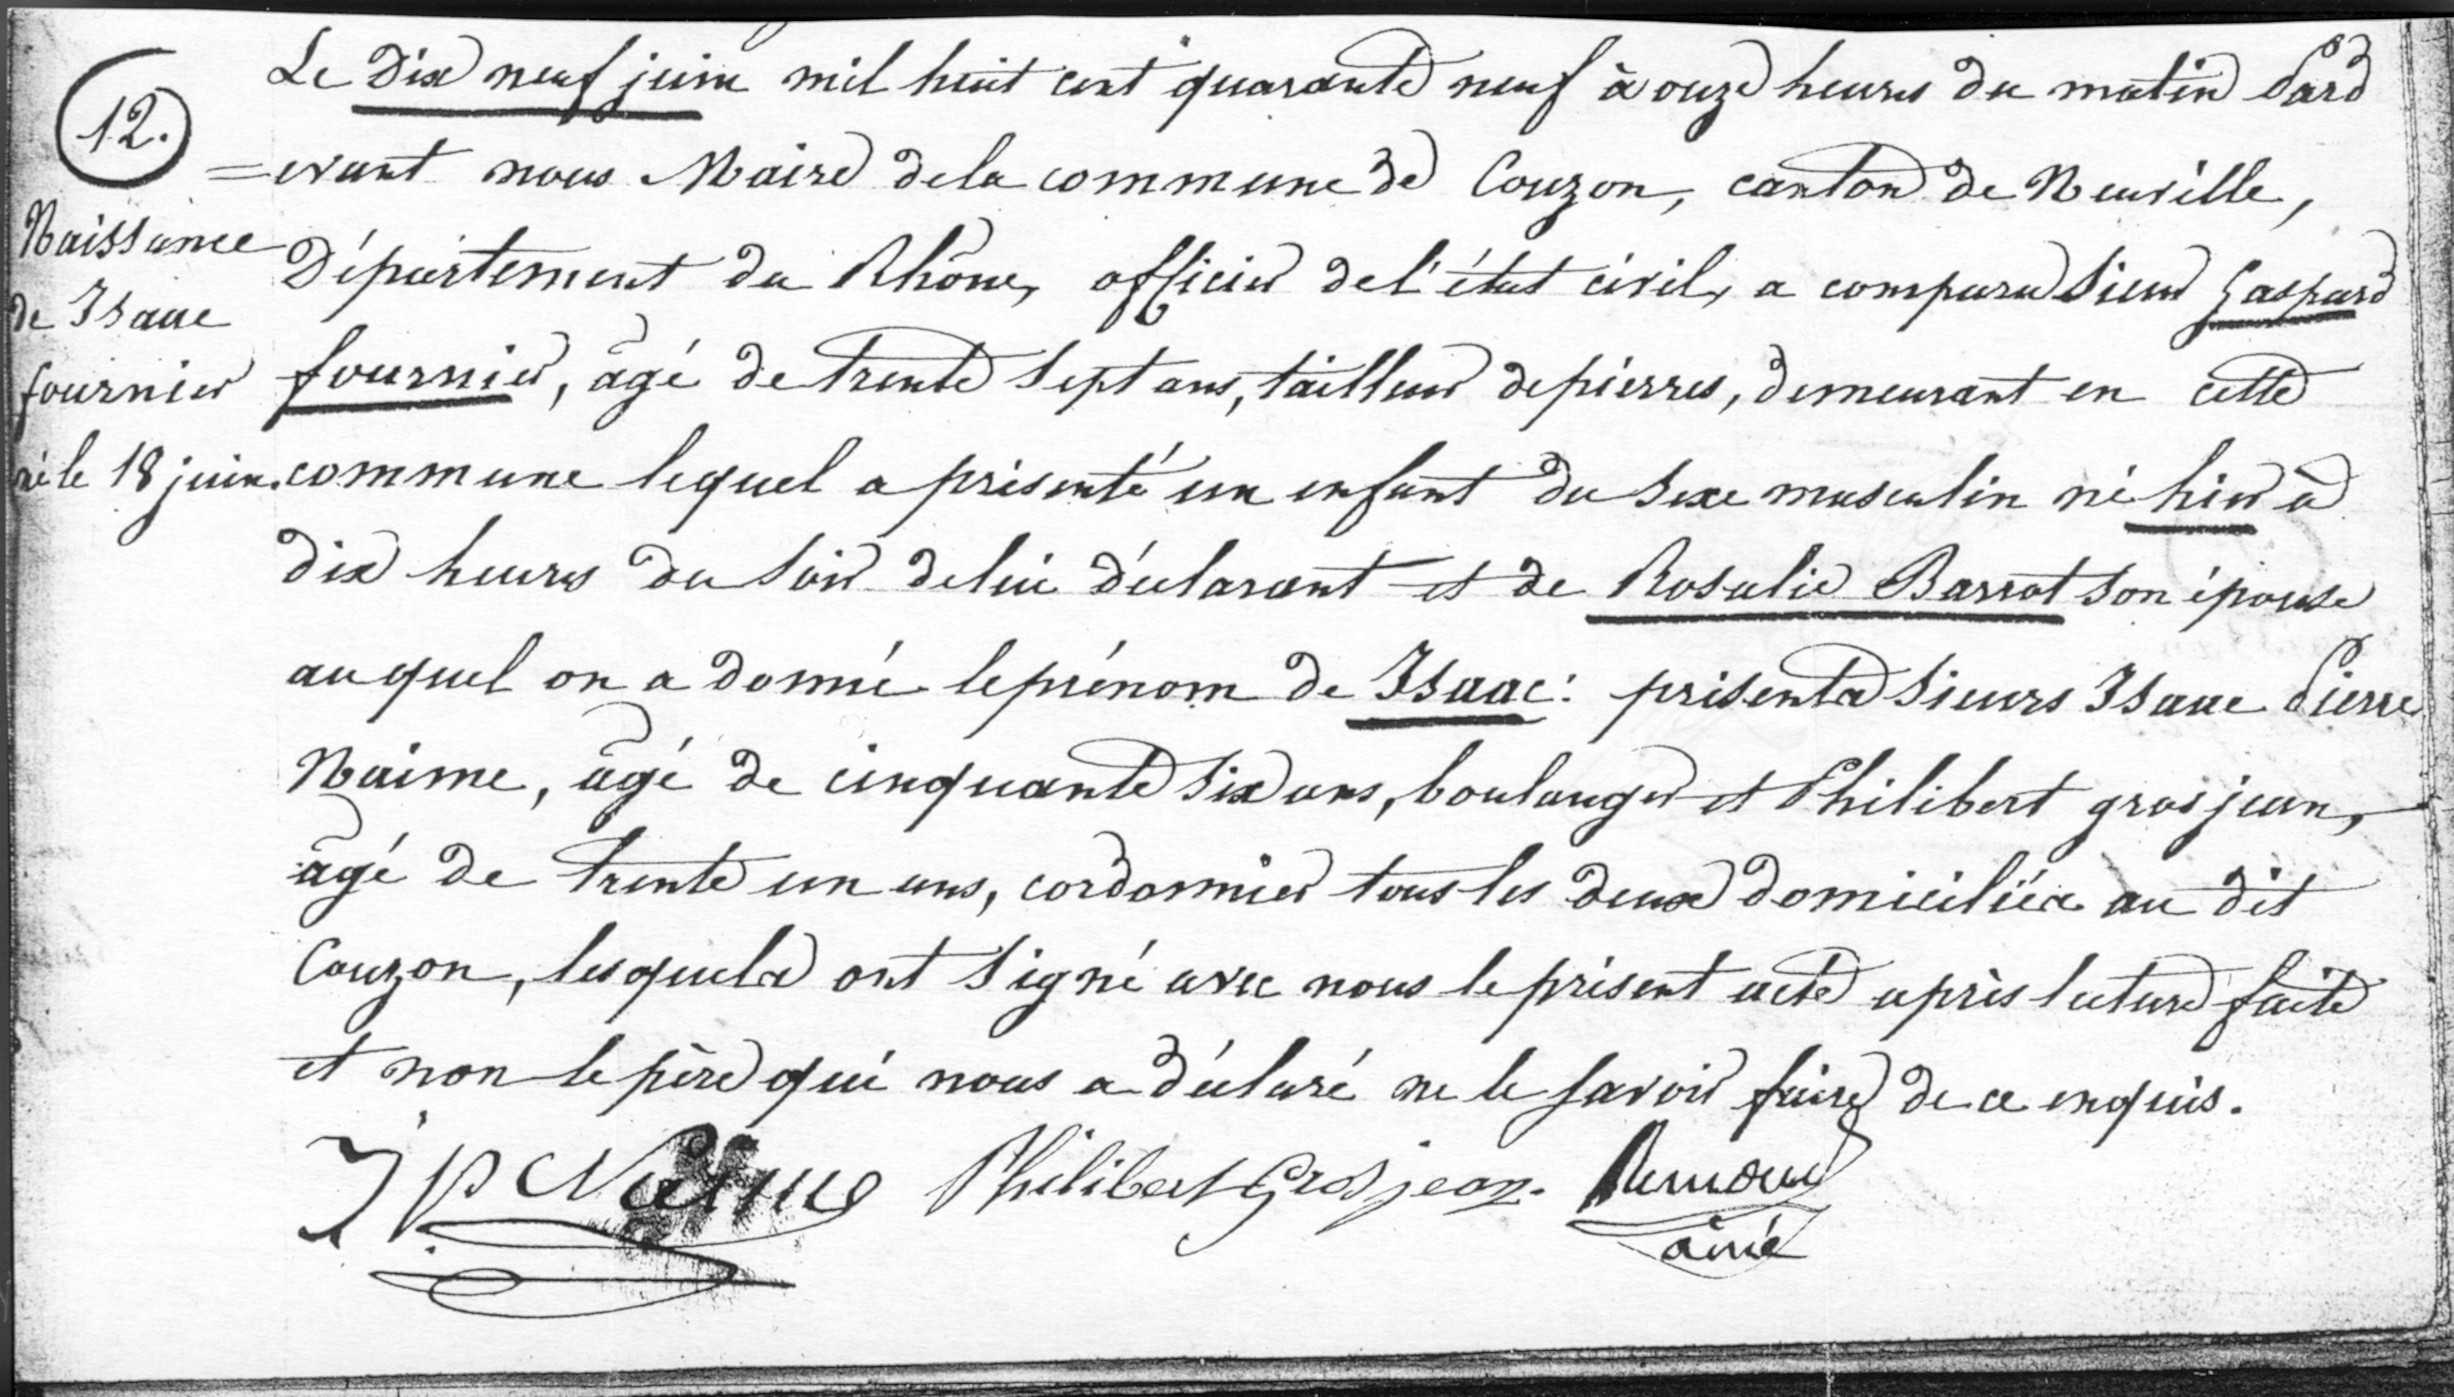 12.
Naissance
de Isaac
fournier
né le 18 juin.
Le dix neuf juin mil huit cent quarante neuf à onze heures du matin Pard
=evant nous Maire de la commune de Couzon, canton de Neuville,
Département du Rhône, officier de l'état civil, a comparu Sieur Gaspard
fournier, âgé de trente Sept ans, tailleur de pierres, demeurant en cette
commune lequel a présenté un enfant du Sexe masculin né hier à
dix heures du Soir de lui déclarant et de Rosalie Barrot son épouse
auquel on a donné le prénom de Isaac: présents Sieurs Isaac Pierre
Naime, âgé de cinquante Six ans, boulanger et Philibert grosjean,
âgé de trente un ans, cordonnier tous les deux domiciliés au dit
Couzon, lesquels ont Signé avec nous le présent acte après lecture faite
et non le père qui nous a déclaré ne le savoir faire de ce enquis.
J P Naime Philibert Grosjean.
ainé